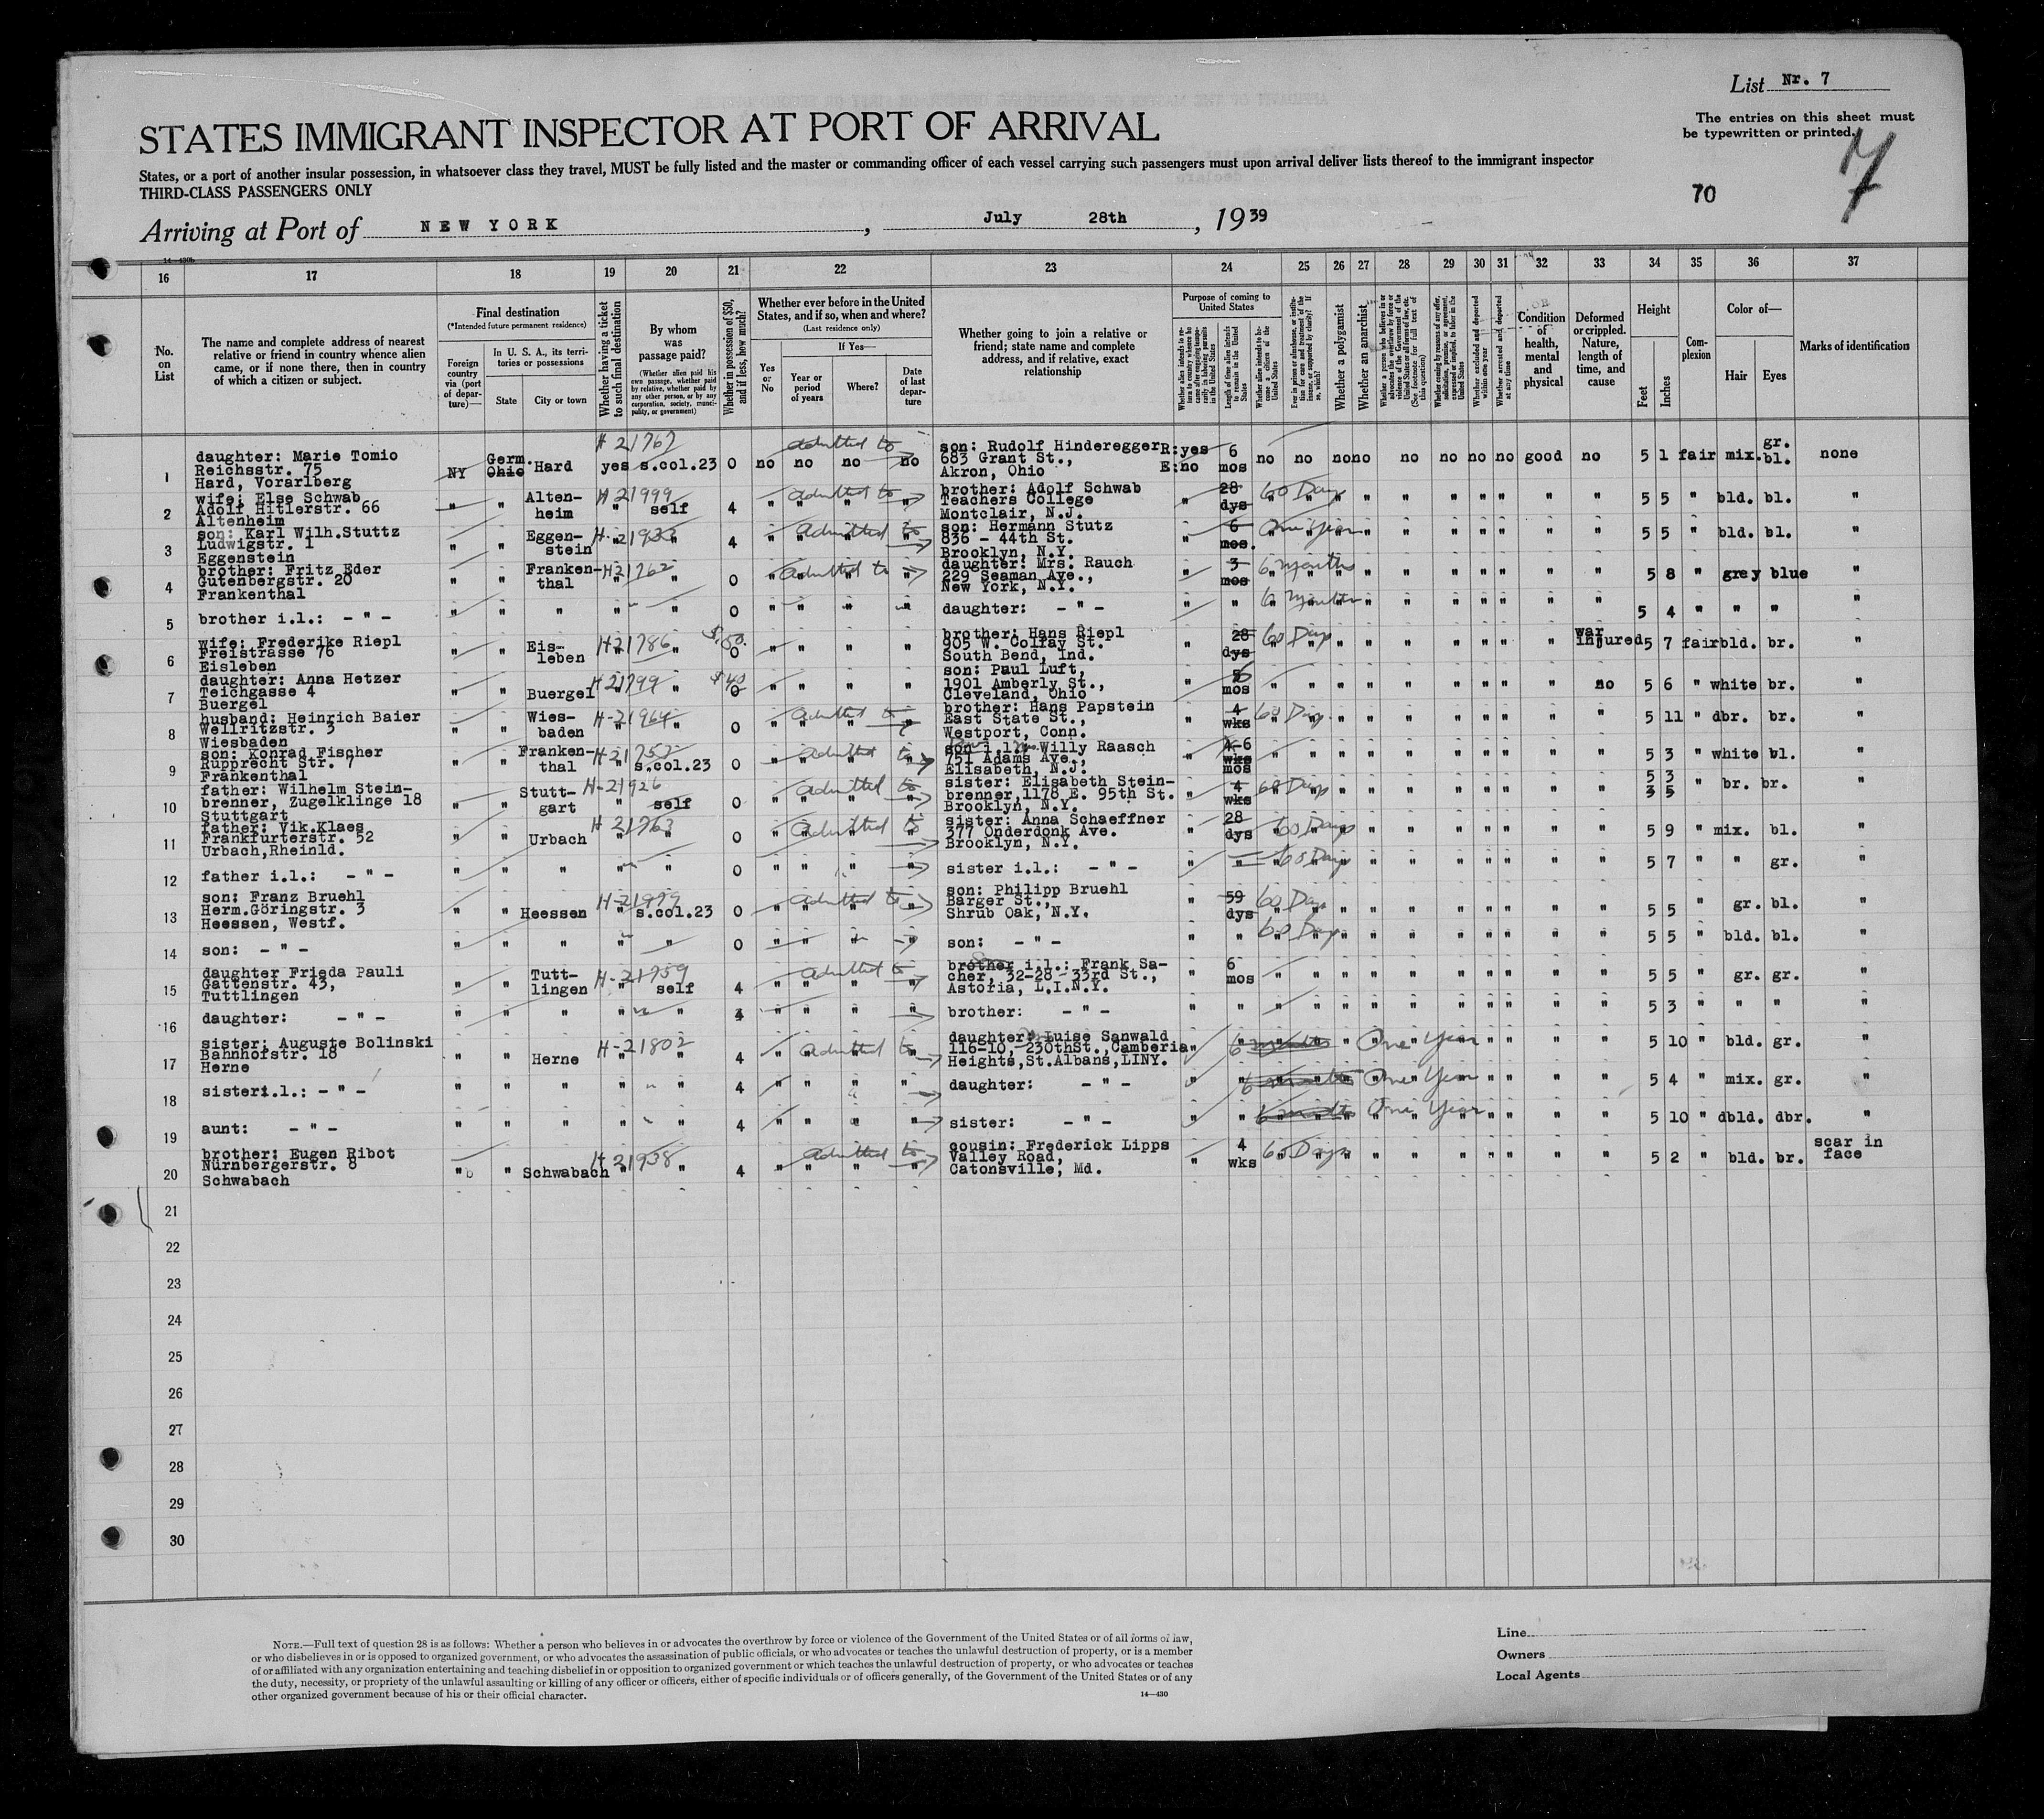 List Nr. 7
The entries on this sheet must
be typewritten or printed.
7
70
STATES IMMIGRANT INSPECTOR AT PORT OF ARRIVAL
States, or a port of another insular possession, in whatsoever class they travel, MUST be fully listed and the master or commanding officer of each vessel carrying such passengers must upon arrival deliver lists thereof to the immigrant inspector
THIRD-CLASS PASSENGERS ONLY
Arriving at Port of NEW YORK, July 28th, 1939
16 17 18 19 20 21 22 23 24 25 26 27 28 29 30 31 32 33 34 35 36 37
No. on List
The name and complete address of nearest relative or friend in country whence alien came, or if none there, then in country of which a citizen or subject.
Final destination
(*Intended future permanent residence)
Foreign country via (port of departure)—
In U. S. A., its territories or possessions
State
City or town
Whether having a ticket to such final destination
By whom was passage paid?
(Whether alien paid his own passage, whether paid by relative, whether paid by any other person, or by any corporation, society, municipality, or government)
Whether in possession of $50, and if less, how much?
Whether ever before in the United States, and if so, when and where?
(Last residence only)
Yes or No
If Yes—
Year or period of years
Where?
Date of last departure
Whether going to join a relative or friend; state name and complete address, and if relative, exact relationship
Purpose of coming to United States
Length of time alien intends to remain in the United States
Whether alien intends to become a citizen of the United States
Whether a polygamist
Whether an anarchist
Whether excluded and deported within one year
Whether arrested and deported at any time
Condition of health, mental and physical
Deformed or crippled. Nature, length of time, and cause
Height
Feet
Inches
Complexion
Color of—
Hair
Eyes
Marks of identification
1 daughter: Marie Tomio Reichsstr. 75 Hard, Vorarlberg NY Germ. Ohio Hard H 21767 yes s.col.23 0 no no no no admitted to son: Rudolf Hinderegger 683 Grant St., Akron, Ohio R:yes E:no 6 mos no no no no no no no no good no 5 1 fair mix. gr. bl. none
2 wife: Else Schwab Adolf Hitlerstr. 66 Altenheim " " Altenheim H 21999 " self 4 " " " " admitted to brother: Adolf Schwab Teachers College Montclair, N.J. " 28 dys 60 Days " " " " " " " " " " 5 5 " bld. bl. "
3 son: Karl Wilh.Stuttz Ludwigstr. 1 Eggenstein " " Eggenstein " " 4 " " " " admitted to son: Hermann Stutz 836 - 44th St. Brooklyn, N.Y. " 6 mos. One Year " " " " " " " " " " 5 5 " bld. bl. "
4 brother: Fritz Eder Gutenbergstr. 20 Frankenthal " " Frankenthal H 21762 " " 0 " " " " admitted to daughter: Mrs. Rauch 229 Seaman Ave., New York, N.Y. " 3 mos 6 months " " " " " " " " " " 5 8 " grey blue "
5 brother i.l.: - " - " " " " " 0 " " " " daughter: - " - " " 6 months " " " " " " " " " " 5 4 " " " "
6 wife: Frederike Riepl Freistrasse 76 Eisleben " " Eisleben H 21786 " " $50. 0 " " " " brother: Hans Riepl 905 W. Colfay St. South Bend, Ind. " 28 dys 60 Days " " " " " " " " " war injured 5 7 fair bld. br. "
7 daughter: Anna Hetzer Teichgasse 4 Buergel " " Buergel H 21799 " " $40 0 " " " " son: Paul Luft, 1901 Amberly St., Cleveland, Ohio " mos " " " " " " " " " no 5 6 " white br. "
8 husband: Heinrich Baier Wellritzstr. 3 Wiesbaden " " Wiesbaden H-21964 " " 0 " " " " admitted to brother: Hans Papstein East State St., Westport, Conn. " 4 wks 60 Days " " " " " " " " " " 5 11 " dbr. br. "
9 son: Konrad Fischer Rupprecht Str. 7 Frankenthal " " Frankenthal H 21757 " s.col.23 0 " " " " admitted to son i.l.: Willy Raasch 751 Adams Ave., Elisabeth, N.J. " 4-6 wks mos " " " " " " " " " " 5 3 " white bl. "
10 father: Wilhelm Steinbrenner, Zugelklinge 18 Stuttgart " " Stuttgart H-21926 " self 0 " " " " admitted to sister: Elisabeth Steinbrenner, 1178 E. 95th St. Brooklyn, N.Y. " 4 wks 60 Days " " " " " " " " " " 5 3 3 5 " br. br. "
11 father: Vik.Klaes Frankfurterstr. 52 Urbach,Rheinld. " " Urbach H 21763 " " 0 " " " " admitted to sister: Anna Schaeffner 377 Onderdonk Ave. Brooklyn, N.Y. " 28 dys 60 Days " " " " " " " " " " 5 9 " mix. bl. "
12 father i.l.: - " - " " " " " 0 " " " " sister i.l.: - " - " " 60 Days " " " " " " " " " " 5 7 " " gr. "
13 son: Franz Bruehl Herm.Göringstr. 3 Heessen, Westf. " " Heessen H-21979 " s.col.23 0 " " " " admitted to son: Philipp Bruehl Barger St., Shrub Oak, N.Y. " 59 dys 60 Days " " " " " " " " " " 5 5 " gr. bl. "
14 son: - " - " " " " " 0 " " " " son: - " - " " 60 Days " " " " " " " " " " 5 5 " bld. bl. "
15 daughter Frieda Pauli Gattenstr. 43, Tuttlingen " " Tuttlingen H-21959 " self 4 " " " " admitted to brother i.l.: Frank Sacher, 32-28 - 33rd St., Astoria, L.I.N.Y. " 6 mos " " " " " " " " " " 5 5 " gr. gr. "
16 daughter: - " - " " " " " 4 " " " " brother: - " - " " " " " " " " " " " " 5 3 " " " "
17 sister: Auguste Bolinski Bahnhofstr. 18 Herne " " Herne H-21802 " " 4 " " " " admitted to daughter: Luise Sanwald 116-10,-230thSt.,Camberia Heights,St.Albans,LINY. " " 6 months One Year " " " " " " " " " " 5 10 " bld. gr. "
18 sisteri.l.: - " - " " " " " 4 " " " " daughter: - " - " " 6 months One Year " " " " " " " " " " 5 4 " mix. gr. "
19 aunt: - " - " " " " " 4 " " " " sister: - " - " " 6 months One Year " " " " " " " " " " 5 10 " dbld. dbr. "
20 brother: Eugen Ribot Nürnbergerstr. 8 Schwabach " " Schwabach H 21938 " " 4 " " " " admitted to cousin: Frederick Lipps Valley Road, Catonsville, Md. " 4 wks 60 Days " " " " " " " " " " 5 2 " bld. br. scar in face
21
22
23
24
25
26
27
28
29
30
NOTE.—Full text of question 28 is as follows: Whether a person who believes in or advocates the overthrow by force or violence of the Government of the United States or of all forms of law,
or who disbelieves in or is opposed to organized government, or who advocates the assassination of public officials, or who advocates or teaches the unlawful destruction of property, or is a member
of or affiliated with any organization entertaining and teaching disbelief in or opposition to organized government or which teaches the unlawful destruction of property, or who advocates or teaches
the duty, necessity, or propriety of the unlawful assaulting or killing of any officer or officers, either of specific individuals or of officers generally, of the Government of the United States or of any
other organized government because of his or their official character.
14—430
Line
Owners
Local Agents